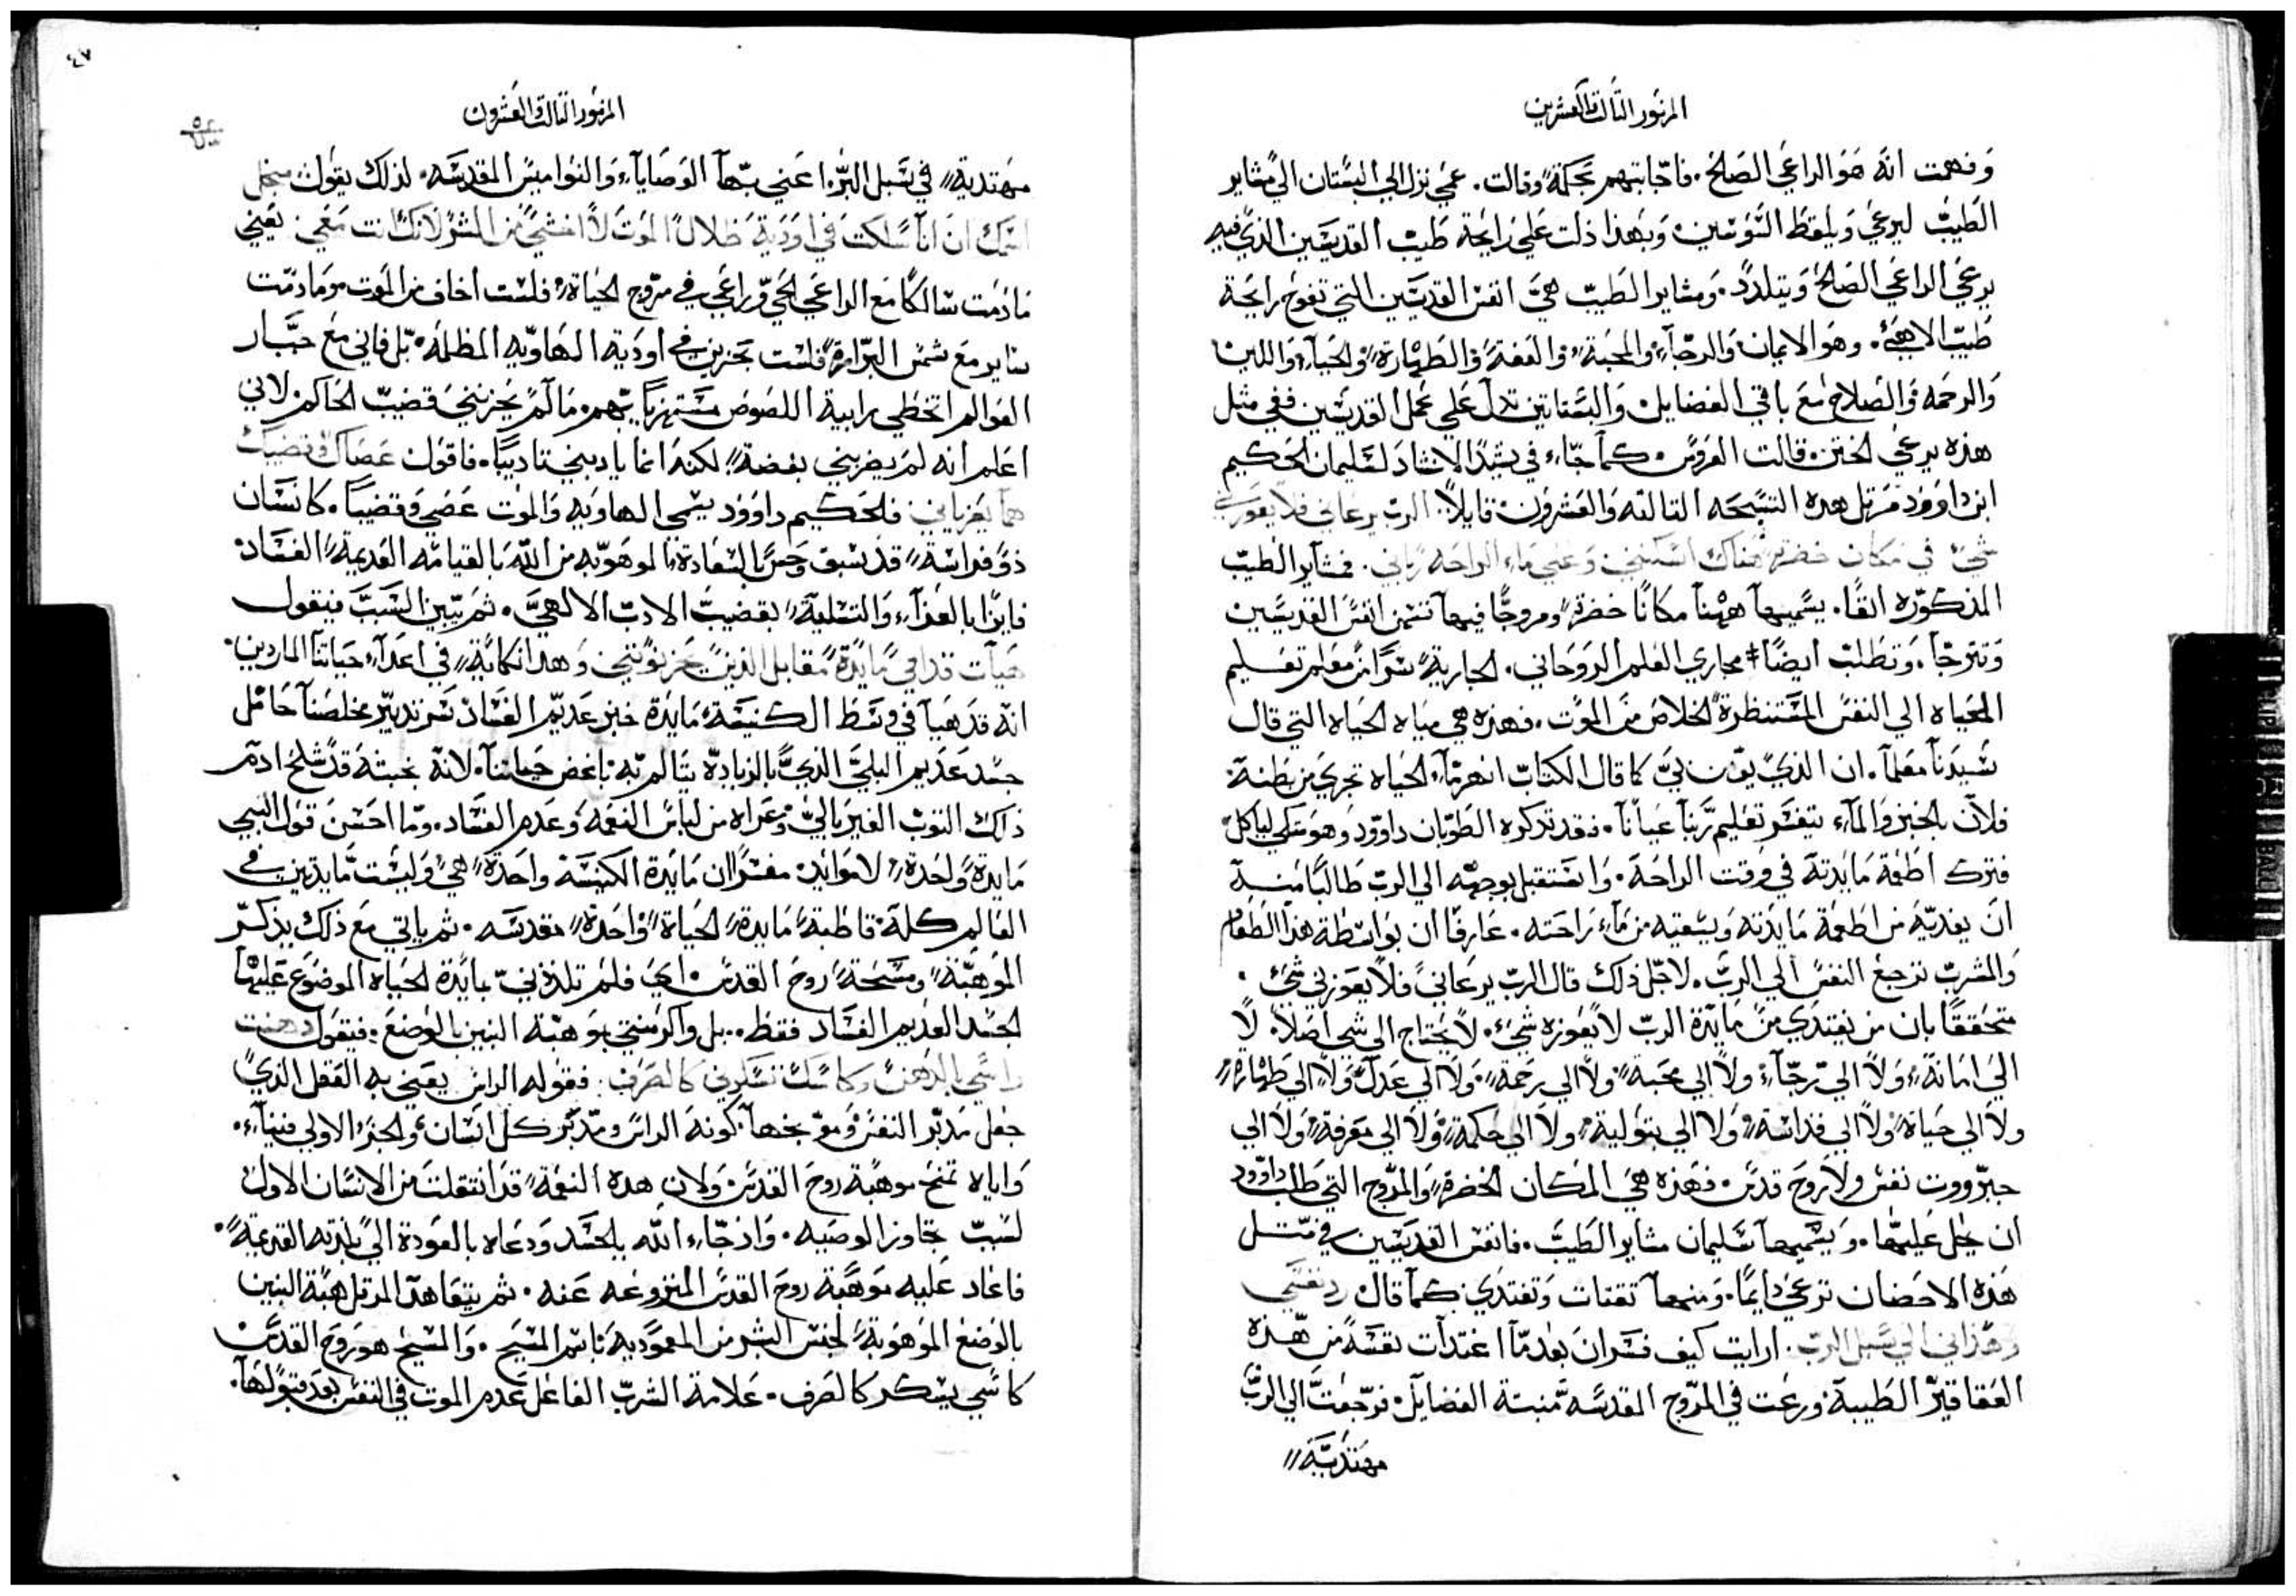 المزمور الثالث والعشرين
وفهمت انه هو الراعي الصالح. فاجابتهم بحكمة وقالت. عمي نزل الي البستان الي مشاير
الطيب ليرعي ويلقط السوسن. وبهذا دلت علي رايحة طيب القديسين الذي فيه
يرعي الراعي الصالح ويتلدد. ومشاير الطيب هي انفس القديسين التي تفوح رايحة
طيب الاهي. وهو الايمان والرجاء والمحبة والعفة والطهارة والحياء واللين
والرحمه والصلاح مع باقي الفضايل والبساتين تدل علي عمل القديسين ففي مثل
هذه يرعي الختن. قالت العروس كما جاء في نشيد الانشاد لسليمان الحكيم
ابن داوود مرتل هذه التسبحه التالته والعشرون قايلا. الرب يرعاني فلا يعوزني
شي في مكان خضرة هناك اسكنني. وعلي ماء الراحه رباني. فمشاير الطيب
المذكوره انفا. يسميها ههنا مكانا خضرة ومروجا فيها تتمن انفس القديسين
وتترجا. وتطلب ايضا مجاري العلم الروحاني. الجارية سرا من معلم تعليم
الحياه الي النفس المستنظرة الخلاص من الموت. فهذه هي مياه الحياه التي قال
سيدنا معلما. ان الذي يومن بي كما قال الكتاب انهر ماء الحياه تجري من بطنه
فلان بالخبز والماء يتفسر تعليم ربنا عيانا. فقد تدكره الطوبان داوود وهو متكي لياكل
فترك اطعمة مايدته في وقت الراحة. واستقبل بوجهه الي الرب طالبا منه
ان يغديه من اطعمة مايدته ويسقيه من ماء راحته. عارفا ان بواسطة هذا الطعام
والمشرب ترجع النفس الي الرب. لاجل ذلك قال الرب يرعاني فلا يعوزني شي.
متحققا بان من يغتدي من مايدة الرب لا يعوزه شي. لا يحتاج الي شي اصلا. لا
الي امانة ولا الي رجاء ولا الي محبة ولا الي رحمة ولا الي عدل ولا الي طهارة
ولا الي حياة ولا الي قداسة ولا الي بتولية ولا الي حكمة ولا الي معرفة ولا الي
جبرووت نفس ولا روح قدس. فهذه هي المكان الخضرة والمروج التي طلب داوود
ان يحل عليها. ويسميها سليمان مشاير الطيب. فانفس القديسين في متل
هذه الاحضان ترعي دايما. ومنها تقتات وتغتدي كما قال رد نفسي
وهداني الي سبل الرب. ارايت كيف فسر ان بعدما اغتدات نفسه من هذه
العقاقير الطيبة ورعت في المروج المقدسه منبتة الفضايل. فرجعت الي الرب
مهتدية
٤٧
المزمور التالت والعشرون
مهتدية في سبل البر. اعني بها الوصايا والنواميس المقدسه. لذلك يقول من اجل
اسمك ان انا سلكت في اودية ظلال الموت لا اخشي من الشر لانك انت معي. يعني
مادمت سالكا مع الراعي الحي وراعي في مروج الحياة فلست اخاف من الموت ومادمت
ساير مع شمس البرارة فلست تحزني في اودية الهاويه المظلمه. بل فاني مع جبار
العوالم اتخطي برابية اللصوص مستهزيا بهم. مالم يحزنني قضيب الحاكم لاني
اعلم انه لم يضربني بغضة لكنه انما يادبني تاديبا. فاقول عصاك وقضيبك
هما يعزياني. فالحكيم داوود يسمي الهاويه والموت عصي وقضيبا. كانسان
ذو فراسة قد سبق وحس بالسعادة الموهوبه من الله بالقيامه العديمة الفساد
فايزا بالعزاء والتسلية بقضيب الادب الالهي. ثم يبين السبب فيقول
هيات قدامي مايدة مقابل الذين يحزنونني. وهذا نكاية في اعداء حياتنا الماردين.
انه قد هيا في وسط الكنيسة مايدة خبز عديم الفساد سر تدبير مخلصنا حامل
جسد عديم البلي الذي بالزيادة يتالم به باغض حياتنا. لانه بخبثه قد شلح ادم
ذلك التوب الغير بالي وعراه من لباس النعمه وعدم الفساد. وما احسن قول النبي
مايدة واحدة لا موايد. مفسرا ان مايدة الكنيسه واحدة هي وليست مايدتين في
العالم كله قاطبة مايدة الحياة واحدة مقدسه. ثم ياتي مع ذلك بذكر
الموهبة ومسحة روح القدس اي فلم تلذذني بمايدة الحياه الموضوع عليها
الجسد العديم الفساد فقط. بل واكرمتني بموهبة البنين بالوضع. فيقول دهنت
راسي بالدهن وكاسك تسكرني كالصرف. فقوله الراس يعني به العقل الذي
جعل مدبر النفس وموبخها كونه الراس ومدبر كل انسان والجزء الاولي فينا.
واياه تمنح موهبة روح القدس ولان هذه النعمة قد انتقلت من الانسان الاول
لسبب تجاوز الوصيه. واذ جاء الله بالجسد ودعاه بالعودة الي بلدته القديمة.
فاعاد عليه موهبة روح القدس المنزوعه عنه. ثم يتعاهد المرتل هبة البنين
بالوضع الموهوبة لجنس البشر من المعموديه باسم المسيح. والمسيح هو روح القدس
كاسي يسكر كالصرف. علامة الشرب الفاعل عدم الموت في النفس بعد قبولها.